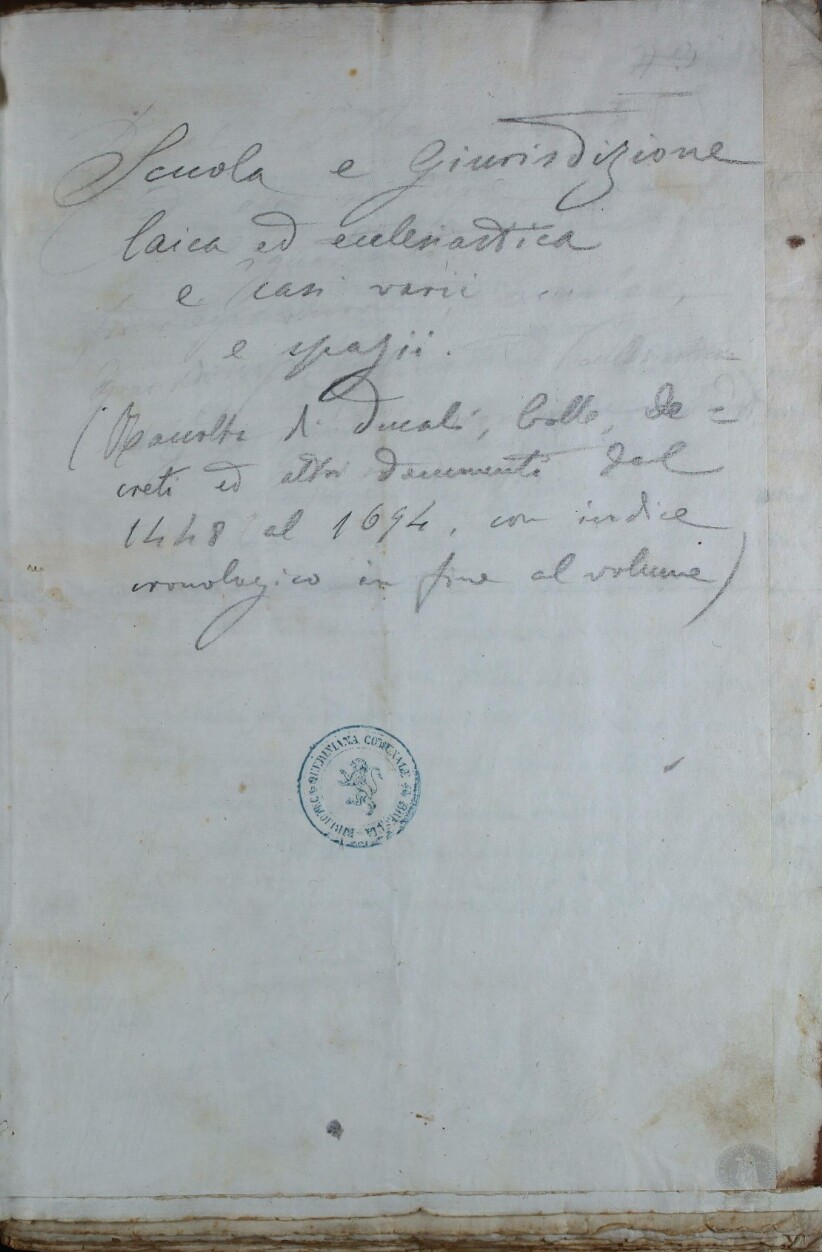 Scuola e Giurisdizione
laica ed ecclesiastica
e casi varii
e spazii.
(Raccolta di Ducali, Bolle, De=
creti ed altri documenti dal
1448 al 1694, con indice
cronologico in fine al volume)
BIBLIOTECA QUERINIANA COMUNALE DI BRESCIA